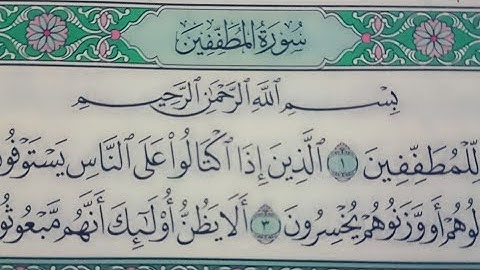 سُورَةُ الْمُطَفِّفِينَ
بِسْمِ اللَّهِ الرَّحْمَٰنِ الرَّحِيمِ
لِّلْمُطَفِّفِينَ ۝١ الَّذِينَ إِذَا اكْتَالُوا عَلَى النَّاسِ يَسْتَوْفُو
لُوهُمْ أَو وَّزَنُوهُمْ يُخْسِرُونَ ۝٣ أَلَا يَظُنُّ أُولَٰئِكَ أَنَّهُم مَّبْعُوثُو